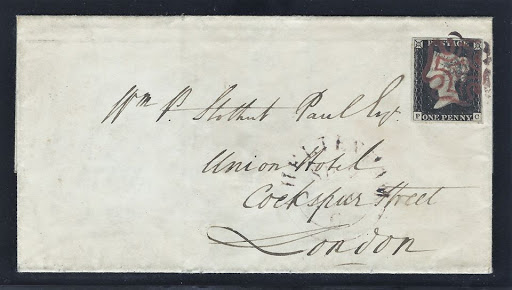 POSTAGE
ONE PENNY
Wm P. Stothert Paul Esq.
Union Hotel
Cockspur Street
London